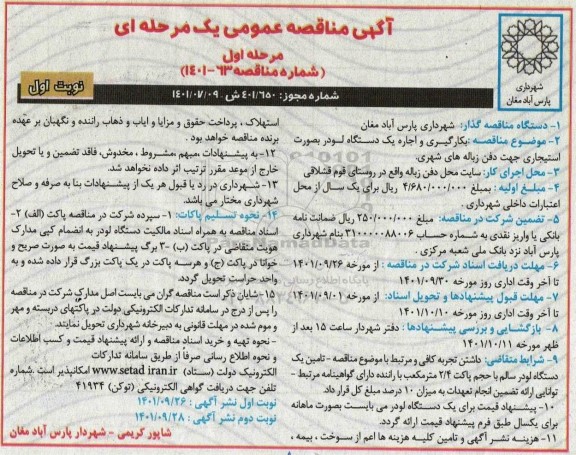 آگهی مناقصه عمومی یک مرحله ای
مرحله اول
(شماره مناقصه ۶۳-۱۴۰۱)
شهرداری
پارس آباد مغان
نوبت اول
شماره مجوز: ۴۰۱/۶۵۰ش . ۱۴۰۱/۰۷/۰۹
۱- دستگاه مناقصه گذار: شهرداری پارس آباد مغان
۲- موضوع مناقصه: بکارگیری و اجاره یک دستگاه لودر بصورت
استیجاری جهت دفن زباله های شهری.
۳- محل اجرای کار: سایت محل دفن زباله واقع در روستای قوم قشلاقی
۴- مبلغ اولیه : بمبلغ ۴/۶۸۰/۰۰۰/۰۰۰ ریال برای یک سال از محل
اعتبارات داخلی شهرداری.
۵- تضمین شرکت در مناقصه: مبلغ ۲۵۰/۰۰۰/۰۰۰ ریال ضمانت نامه
بانکی یا واریز نقدی به شماره حساب ۳۱۰۰۰۰۰۸۸۰۰۶ بنام شهرداری
پارس آباد نزد بانک ملی شعبه مرکزی .
۶- مهلت دریافت اسناد شرکت در مناقصه : از مورخه ۱۴۰۱/۰۹/۲۶
تا آخر وقت اداری روز مورخه ۱۴۰۱/۰۹/۳۰
۷- مهلت قبول پیشنهادها و تحویل اسناد: از مورخه ۱۴۰۱/۰۹/۰۱
تا آخر وقت اداری روز مورخه ۱۴۰۱/۱۰/۱۰
۸- بازگشایی و بررسی پیشنهادها : دفتر شهردار ساعت ۱۵ بعد از
ظهر مورخه ۱۴۰۱/۱۰/۱۱
۹- شرایط متقاضی: داشتن تجربه کافی و مرتبط با موضوع مناقصه - تامین یک
دستگاه لودر سالم با حجم پاکت ۲/۴ مترمکعب با راننده دارای گواهینامه مرتبط -
توانایی ارائه تضمین انجام تعهدات به میزان ۱۰ درصد مبلغ کل قرار داد.
۱۰- پیشنهاد قیمت برای یک دستگاه لودر می بایست بصورت ماهانه
برای یکسال طبق فرم پیشنهاد قیمت ارائه گردد.
۱۱- هزینه نشر آگهی و تامین کلیه هزینه ها اعم از سوخت ، بیمه ،
استهلاک ، پرداخت حقوق و مزایا و ایاب و ذهاب راننده و نگهبان بر عهده
برنده مناقصه خواهد بود .
۱۲- به پیشنهادات ،مبهم ،مشروط ، مخدوش، فاقد تضمین و یا تحویل
خارج از موعد مقرر ترتیب اثر داده نخواهد شد.
۱۳- شهرداری در رد یا قبول هر یک از پیشنهادات بنا به صرفه و صلاح
شهرداری مختار می باشد.
۱۴- نحوه تسلیم پاکات: ۱- سپرده شرکت در مناقصه پاکت (الف) ۲-
اسناد مناقصه به همراه اسناد مالکیت دستگاه لودر به انضمام کپی مدارک
هویت متقاضی در پاکت (ب) ۳- برگ پیشنهاد قیمت به صورت صریح و
خوانا در پاکت (ج) و هرسه پاکت در یک پاکت بزرگ قرار داده شده و به
واحد حراست تحویل گردد.
۱۵- شایان ذکر است مناقصه گران می بایست اصل مدارک شرکت در مناقصه
را پس از درج در سامانه تدارکات الکترونیکی دولت در پاکتهای دربسته و مهر
و موم شده در مهلت قانونی به دبیرخانه شهرداری تحویل نمایند.
- نحوه تهیه و خرید اسناد مناقصه و ارائه پیشنهاد قیمت و کسب اطلاعات
و نحوه اطلاع رسانی صرفا از طریق سامانه تدارکات
الکترونیک دولت (ستاد) www.setad iran.ir امکانپذیر است .شماره
تلفن جهت دریافت گواهی الکترونیکی (توکن) ۴۱۹۳۴
نوبت اول نشر آگهی : ۱۴۰۱/۰۹/۲۶
نوبت دوم نشر آگهی : ۱۴۰۱/۰۹/۲۸
شاپور کریمی - شهردار پارس آباد مغان